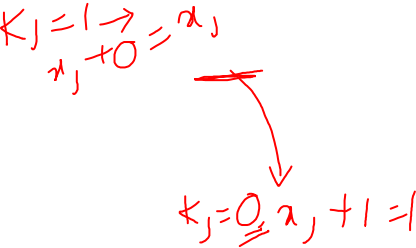 Kⱼ=1→
xⱼ+0=xⱼ
Kⱼ=0, xⱼ+1=1